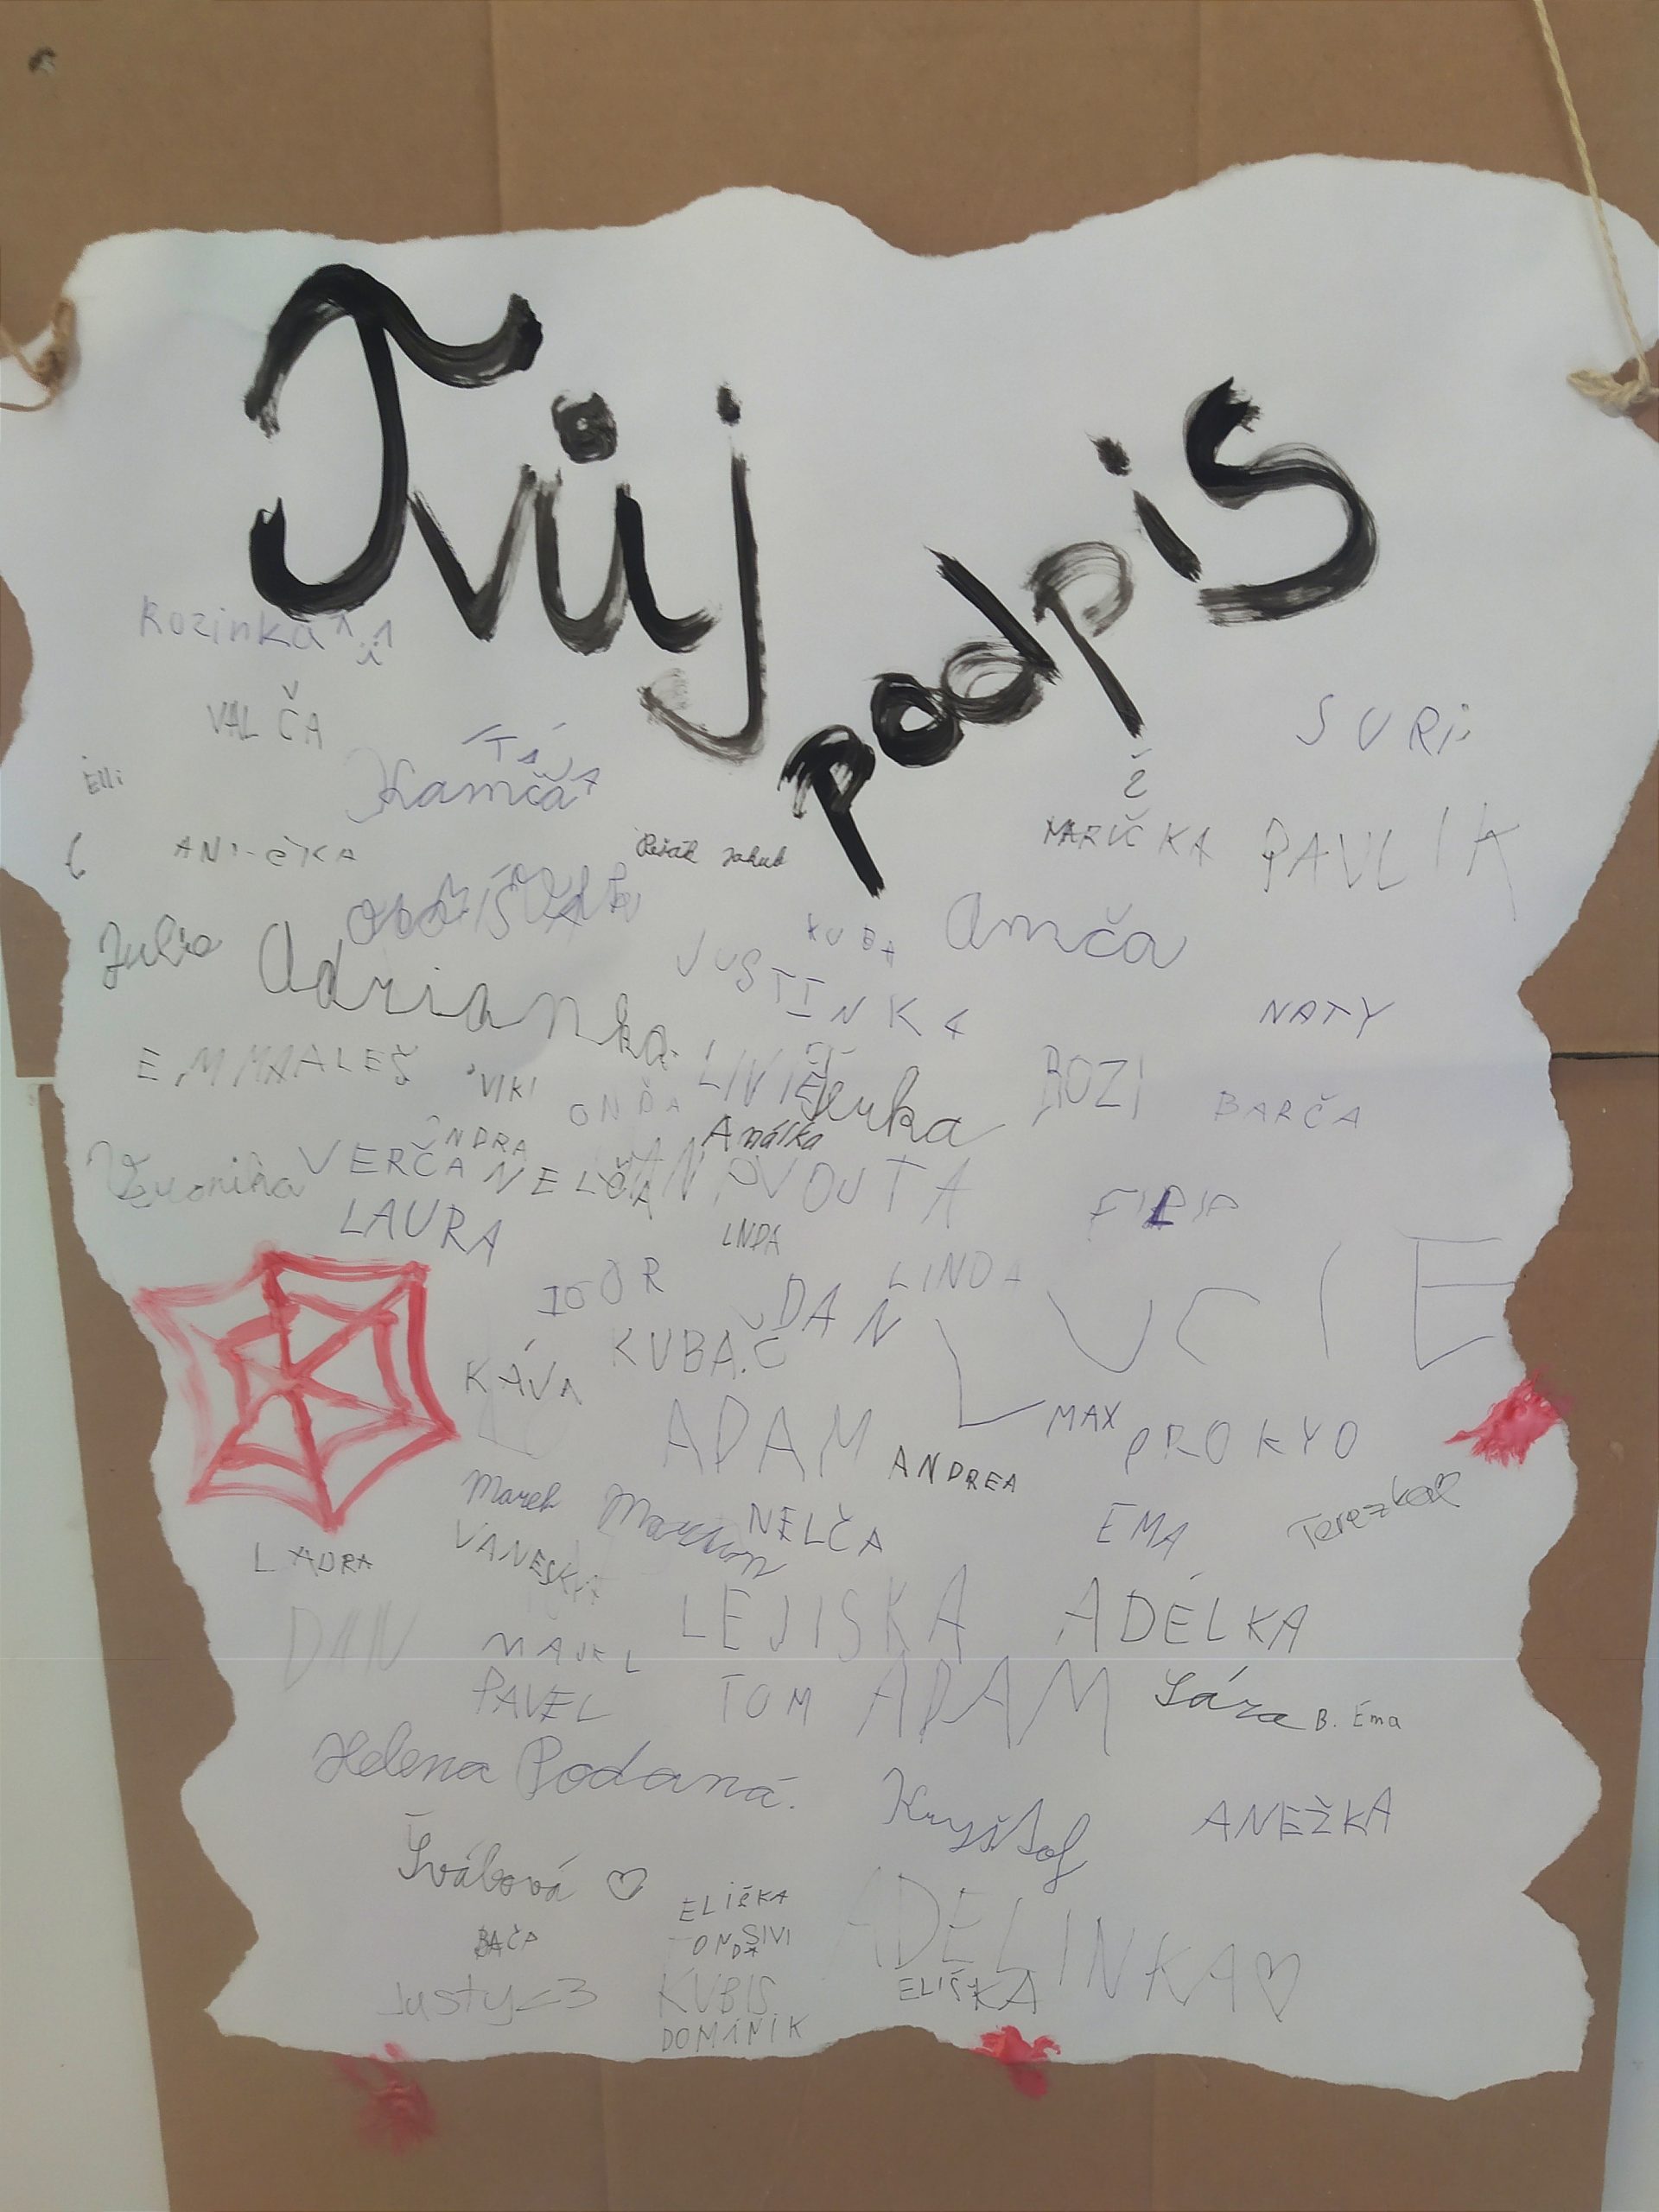 Tvůj
podpis
Rozinka
VALČA
SURi
TÁ
Kamča
Elli
MARUČKA PAVLIK
Peták Jakub
Julie
Adrianka
KUBA
Amča
JUSTINKA
NATY
EMMA ALEŠ
VIKI
ONĎA
LIVIE
Jenka
ROZI
BARČA
ONDRA
Amálka
Veronika
VERČA
NELČA
VOJTA
FILIP
LAURA
LINDA
IGOR
DAN
LUCIE
KUBAČ
KÁVA
ADAM
ANDREA
MAX
PROKYO
Marek
NELČA
EMA
Terezka
VANESKA
LAURA
DAN
LEJISKA
ADÉLKA
PAVEL
TOM
ADAM
Sára
B. Ema
Helena Podaná.
Kryštof
ANEŽKA
Švábová ♡
ELIŠKA
ADELINKA ♡
BAČA
ONDA
SIVI
ELIŠKA
Justy <3
KUBIS
DOMINIK